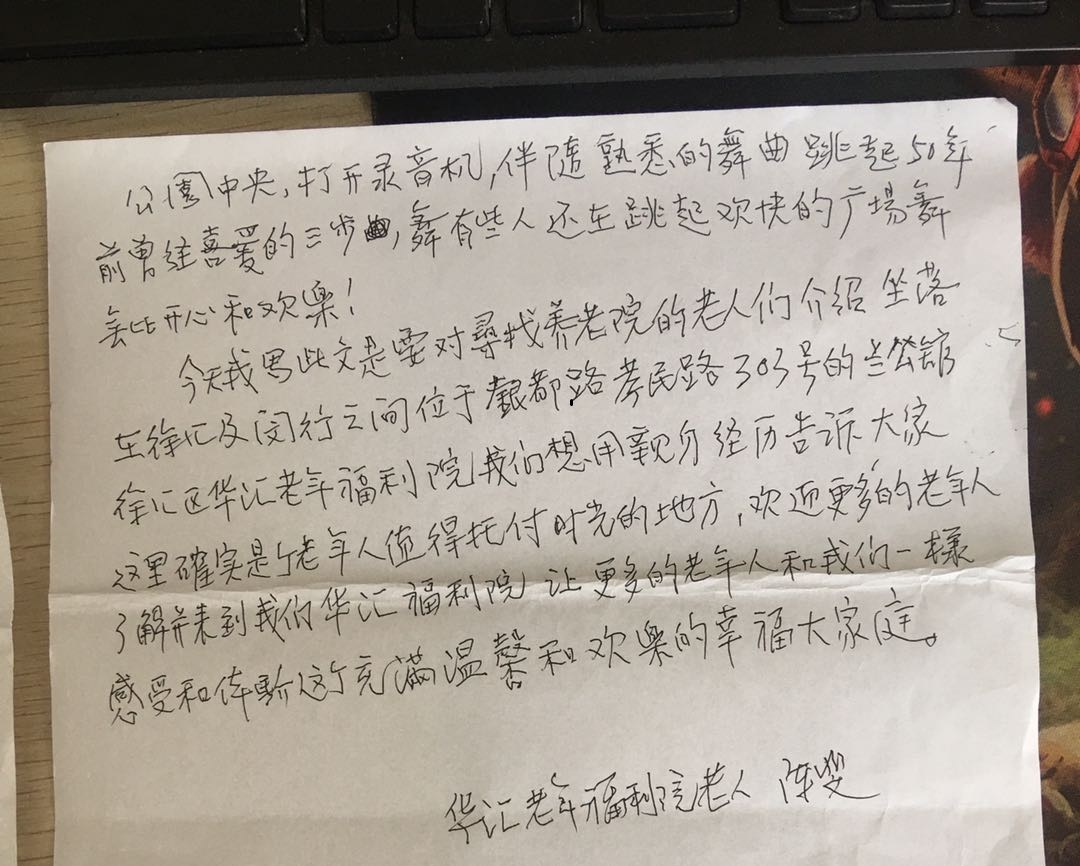 公園中央,打开录音机,伴随熟悉的舞曲跳起50年
前曾经喜爱的三步,舞有些人还在跳起欢快的广場舞
無比开心和欢樂!
今天我写此文是要对尋找养老院的老人们介绍坐落
在徐汇及闵行之间位于都路孝民路303号的兰公館
徐汇区华汇老年福利院我们想用親身经历告诉大家
这里確实是个老年人值得托付时光的地方,欢迎更多的老年人
了解并来到我们华汇福利院让更多的老年人和我们一樣
感受和体驗这个充滿温馨和欢樂的幸福大家庭。
华汇老年福利院老人 陈